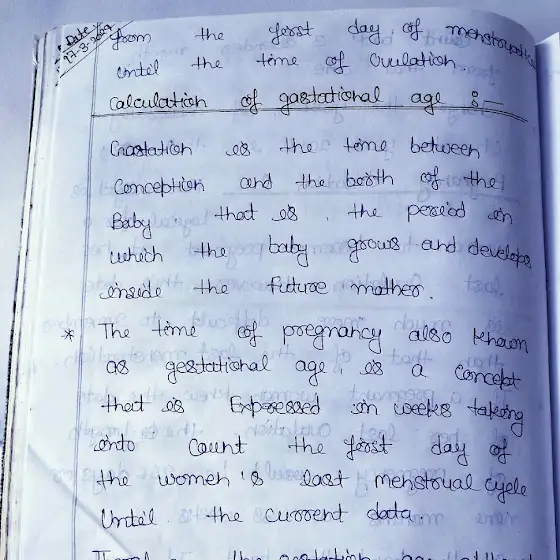 Date
17-8-209
from the first day of menstruation
until the time of Ovulation
Calculation of gastational age :-
Gastation is the time between
Conception and the birth of the
Baby that is, the period in
which the baby grows and develops
inside the future mother.
* The time of pregnancy also known
as gestational age, is a concept
that is Expressed in weeks taking
into Count the first day of
the women's last menstrual cycle
Until the current data
the gestation